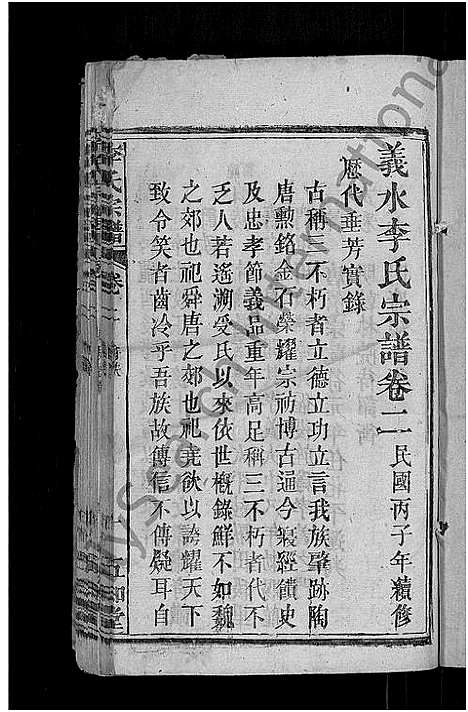 義水李氏宗譜卷二 民國丙子年續修
歷代垂芳實錄
古稱三不朽者立德立功立言我族肇跡陶
唐勳銘金石榮耀宗祊博古通今寢經饋史
及忠孝節義品重年高足稱三不朽者代不
乏人若遙溯受氏以來依世概錄鮮不如魏
之郊也祀舜唐之郊也祀堯欲以誇耀天下
致令笑者齒冷乎吾族故傳信不傳疑耳自
李氏宗譜 卷二